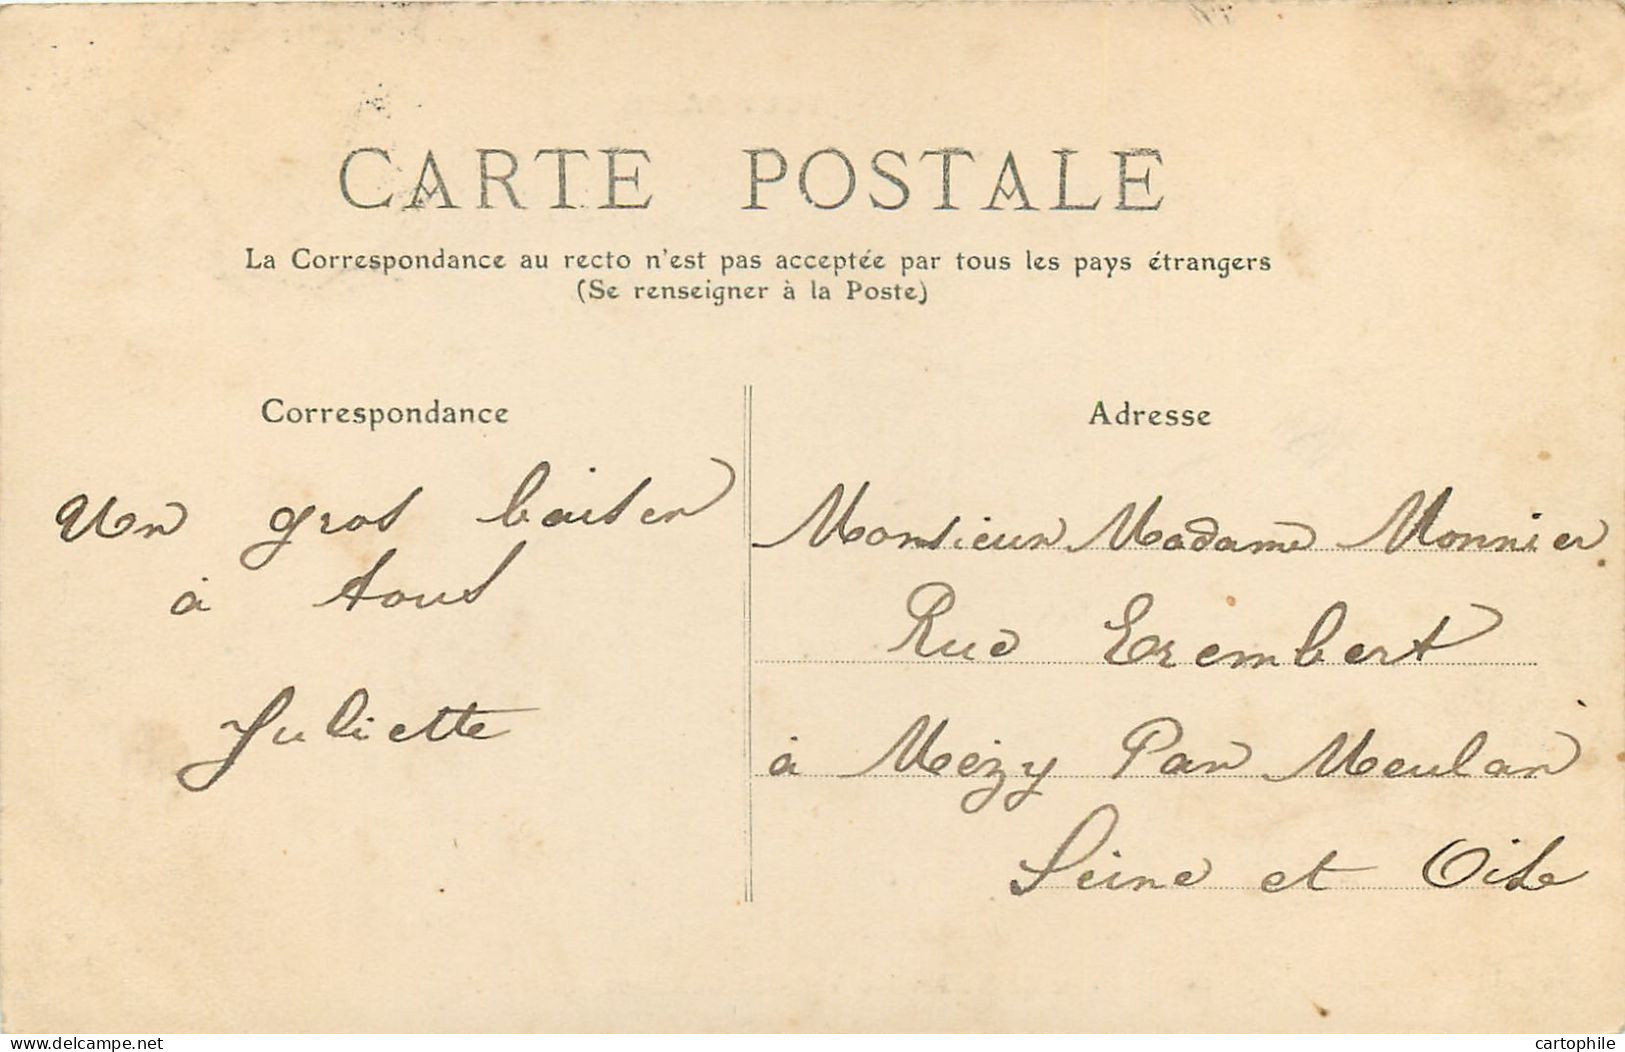 CARTE POSTALE
La Correspondance au recto n'est pas acceptée par tous les pays étrangers
(Se renseigner à la Poste)
Correspondance
Un gros baiser
à tous
Juliette
Adresse
Monsieur Madame Monnier
Rue Erembert
à Mézy Par Meulan
Seine et Oise
www.delcampe.net
cartophile